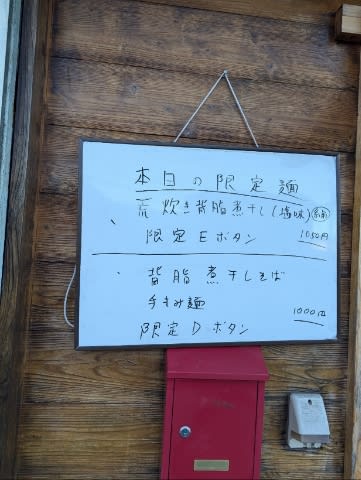 本日の限定麺
荒炊き背脂煮干し(塩味) 細
限定Eボタン 1050円
背脂煮干しそば
手もみ麺 1000円
限定Dボタン